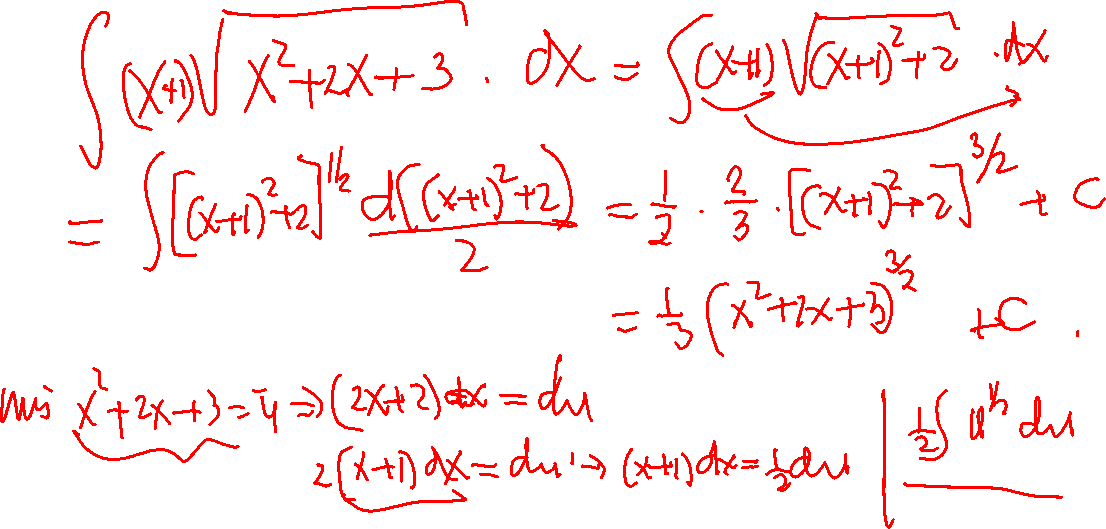 ∫(x+1)√(x²+2x+3) · dx = ∫(x+1)√((x+1)²+2) · dx
= ∫[(x+1)²+2]^{1/2} d((x+1)²+2)/2 = 1/2 · 2/3 · [(x+1)²+2]^{3/2} + C
= 1/3 (x²+2x+3)^{3/2} + C.
x²+2x+3 = u ⇒ (2x+2)dx = du
2(x+1)dx = du → (x+1)dx = 1/2 du | 1/2 ∫ du